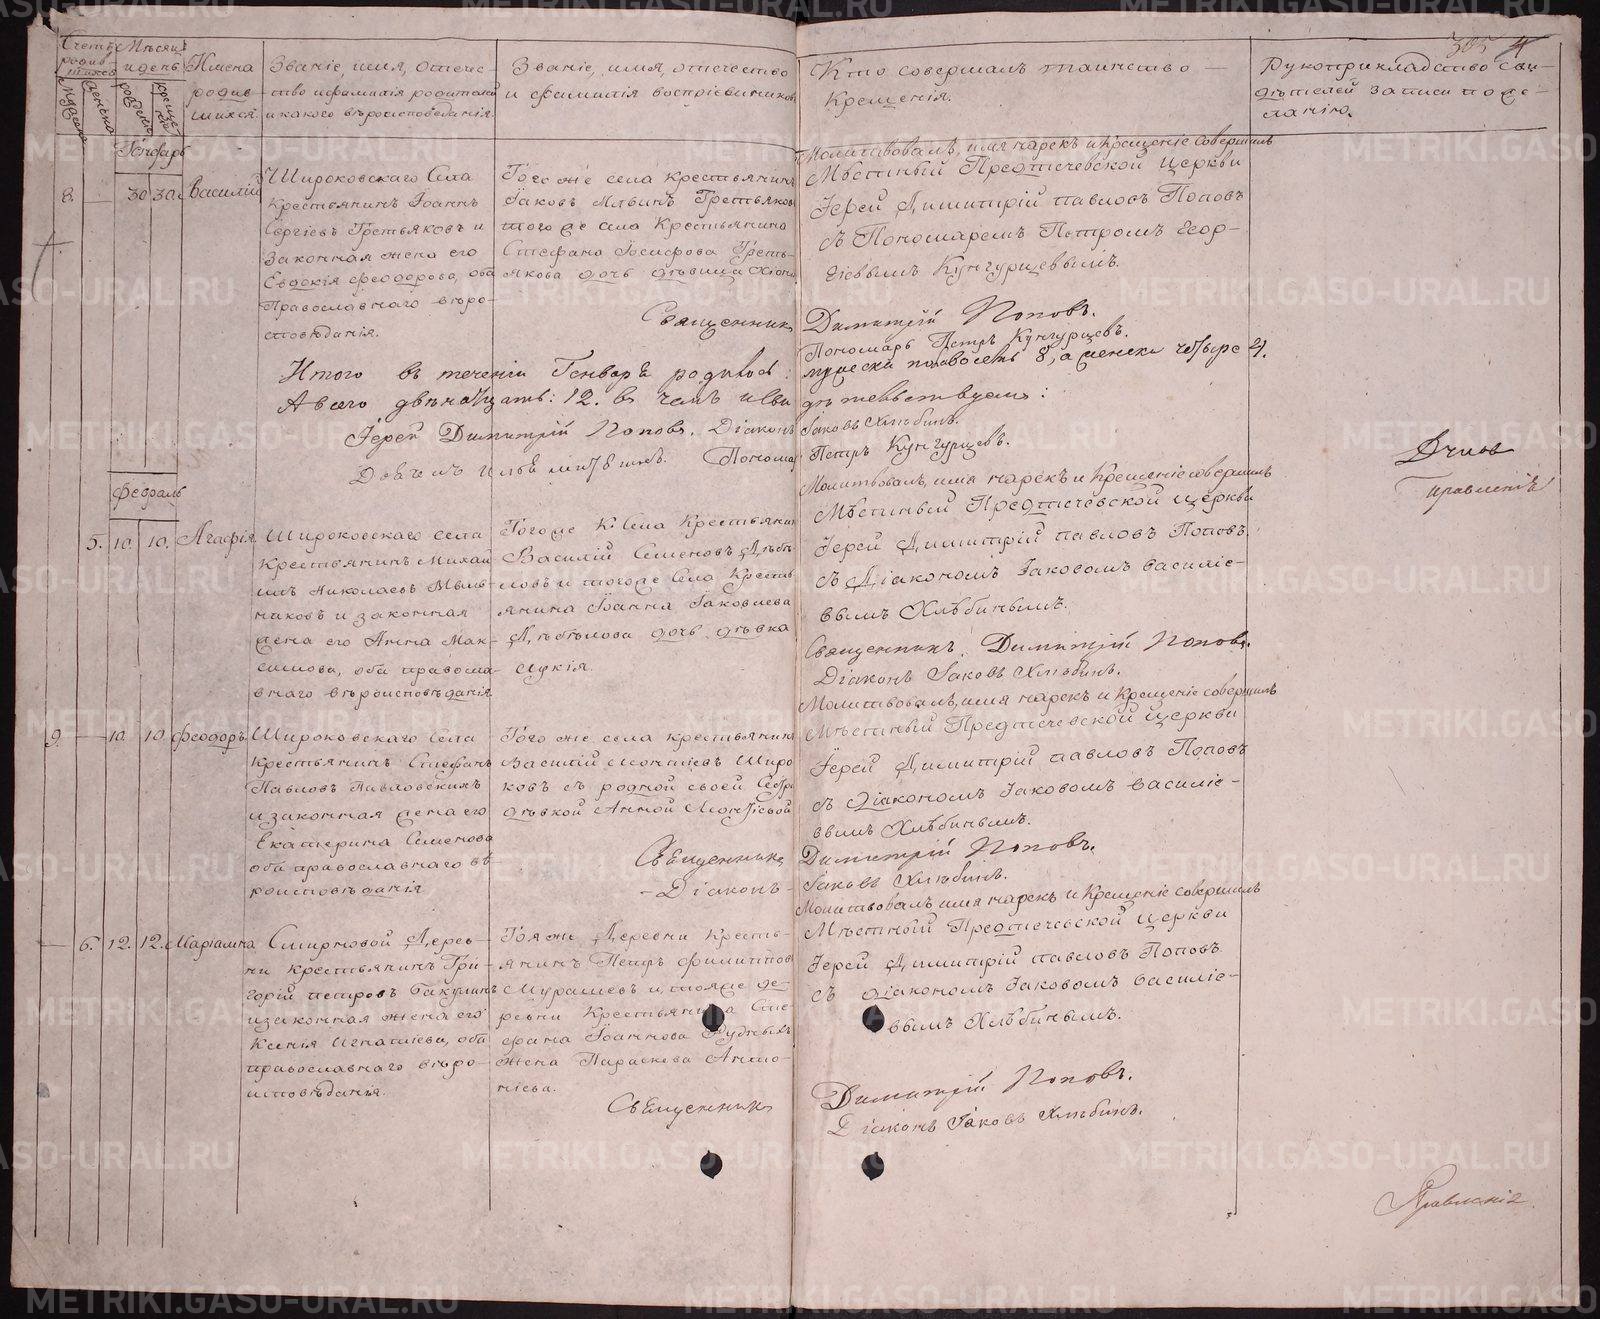 Счетъ родившихся
мужеска
женска
Мѣсяцъ и день
рожденія
крещенія
Имена
родив-
шихся.
Званіе, имя, отече-
ство и фамилія родителей
и какого вѣроисповѣданія.
Званіе, имя, отечество
и фамилія воспріемниковъ
Кто совершалъ таинство
Крещенія.
Рукоприкладство сви-
дѣтелей записи по же-
ланію.
Генварь
8. 30 30. Василій
Широковскаго Села
Крестьянинъ Іоаннъ
Сергіевъ Третьяковъ и
законная жена его
Евдокія Феодорова, оба
Православнаго вѣро-
исповѣданія.
Тогоже села крестьянинъ
Іаковъ Третьяковъ
тогоже села Крестьянина
Стефана Іосифова Треть-
якова дочь дѣвица
Священникъ
Молитвовалъ, имя нарекъ и Крещеніе совершилъ
Мѣстный Предтечевской Церкви
Іерей Димитрій Павловъ Поповъ
съ Пономаремъ Петромъ Геор-
гіевымъ Кунгурцевымъ.
Димитрій Поповъ.
Пономарь Петръ Кунгурцевъ.
Итого въ теченіи Генваря родилось:
мужеска пола восемь 8, а женска четыре 4.
А всего двѣнадцать: 12. въ чемъ и сви
дѣтельствуемъ:
Іерей Димитрій Поповъ. Діаконъ
Іаковъ Хлѣбинъ.
Пономарь
Петръ Кунгурцевъ.
Февраль
5. 10. 10. Агафія
Широковскаго села
Крестьянинъ Михаи
илъ Николаевъ
и законная
жена его Анна Мак-
симова, оба православ-
наго вѣроисповѣданія
Тогоже Села Крестьянинъ
Василій Семеновъ
и тогоже Села Кресть
янина Іоанна Іаковлева
дочь дѣвка
Молитвовалъ, имя нарекъ и Крещеніе совершилъ
Мѣстный Предтечевской Церкви
Іерей Димитрій Павловъ Поповъ
съ Діакономъ Іаковомъ Василіе-
вымъ Хлѣбинымъ.
Священникъ Димитрій Поповъ.
Діаконъ Іаковъ Хлѣбинъ.
9. 10. 10 Феодоръ
Широковскаго Села
Крестьянинъ Стефанъ
Павловъ Павловскихъ
и законная жена его
Екатерина Семенова
оба православнаго вѣ
роисповѣданія
Того же села крестьянинъ
Василій Широ
ковъ съ родной своей Сестро
дѣвкой Анной
Священникъ
Діаконъ
Молитвовалъ, имя нарекъ и Крещеніе совершилъ
Мѣстный Предтечевской Церкви
Іерей Димитрій Павловъ Поповъ
съ Діакономъ Іаковомъ Василіе-
вымъ Хлѣбинымъ.
Димитрій Поповъ.
Іаковъ Хлѣбинъ.
6. 12. 12. Маріамна
Смирновой Дерев-
ни крестьянинъ Гри-
горій Петровъ
и законная жена его
Ксенія Игнатіева, оба
православнаго вѣро-
исповѣданія.
Тояже Деревни Кресть-
янинъ Петръ Филипповъ
Мурашевъ и тояже де-
ревни Крестьянина Сте-
фана Іоаннова Рудныхъ
жена Параскева Анто-
ніева.
Священникъ
Молитвовалъ имя нарекъ и Крещеніе совершилъ
Мѣстный Предтечевской Церкви
Іерей Димитрій Павловъ Поповъ
съ Діакономъ Іаковомъ Василіе-
вымъ Хлѣбинымъ.
Димитрій Поповъ.
Діаконъ Іаковъ Хлѣбинъ.
METRIKI.GASO-URAL.RU